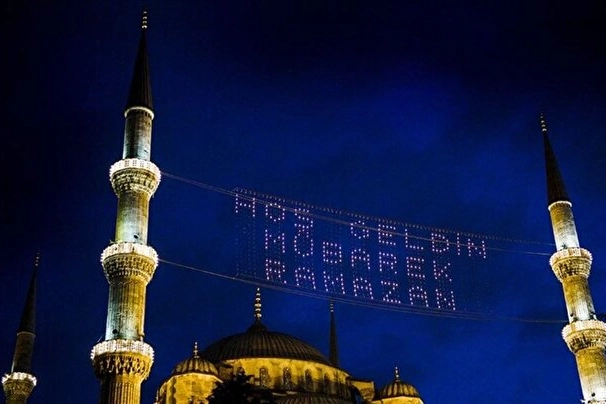 HOŞ GELDİN
MÜBAREK
RAMAZAN